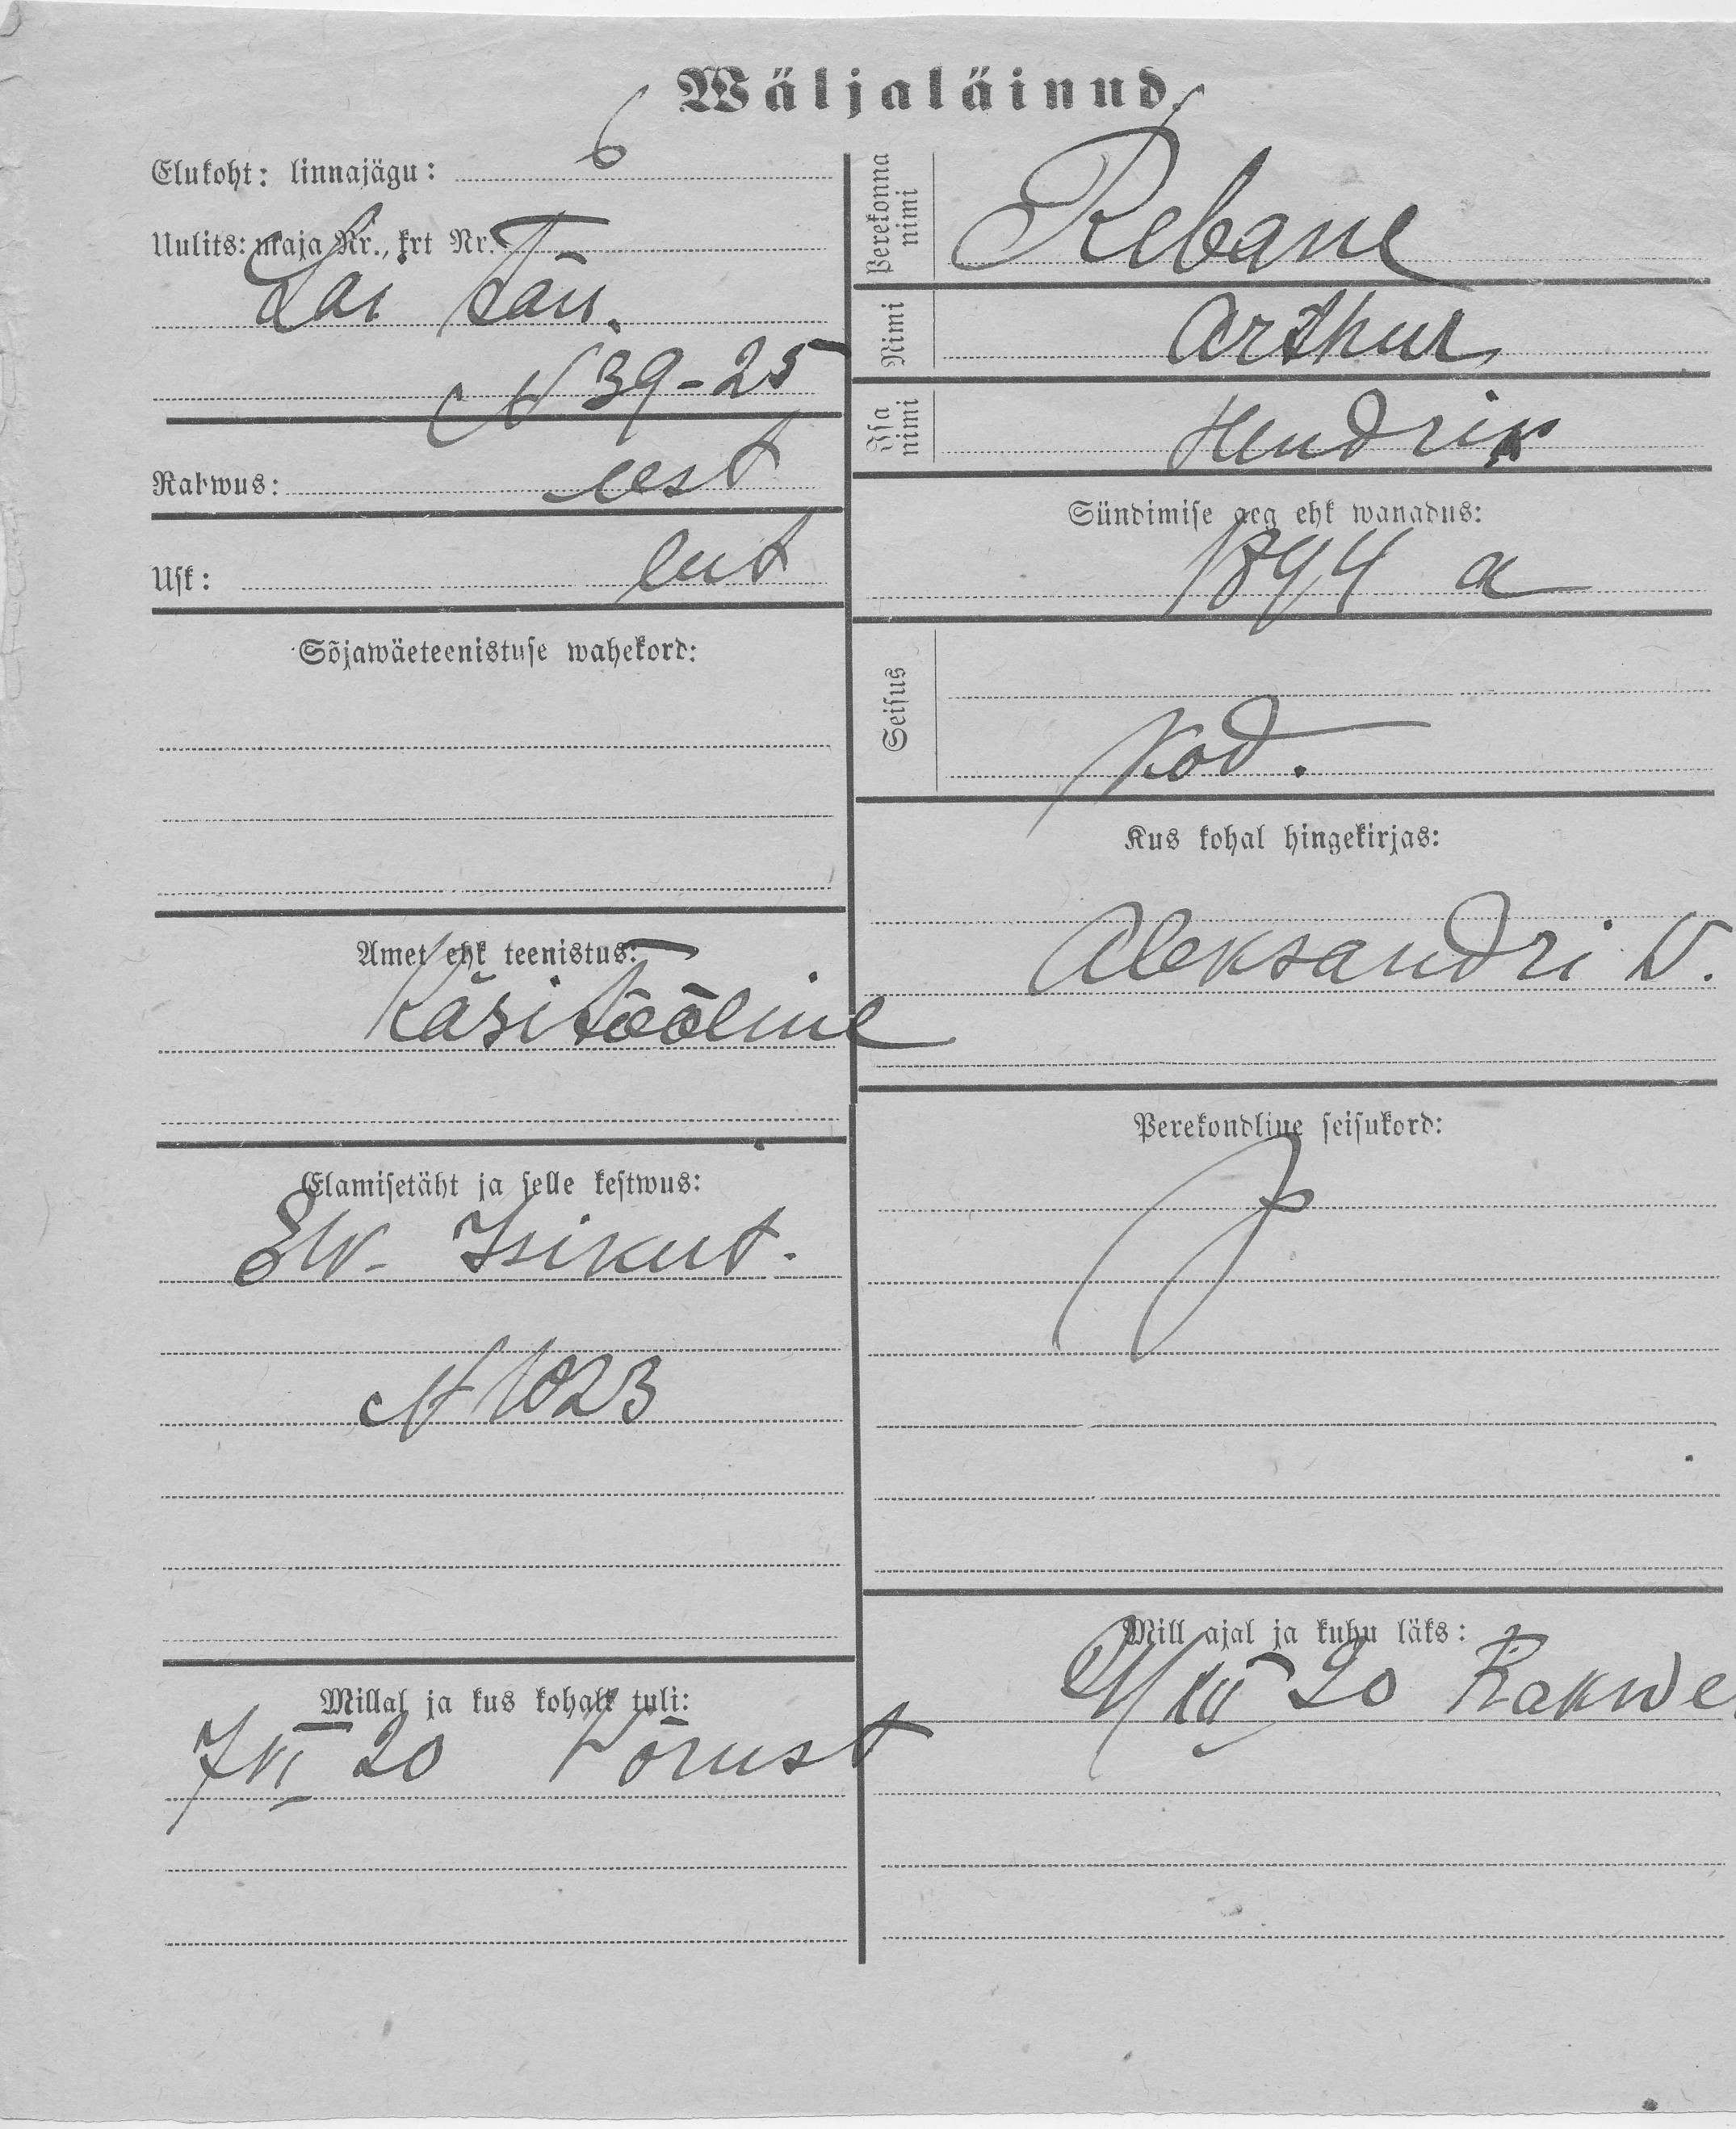 Wäljaläinud.
Elukoht: linnajägu: 6
Uulits: maja Nr., krt Nr.
Lai tän.
N 39-25
Rahwus: eest
Usk: lut
Sõjawäeteenistuse wahekord:
Amet ehk teenistus:
Käsitööline
Elamisetäht ja selle kestwus:
Ew. Isikut.
N 1023
Millal ja kus kohalt tuli:
7 VI 20 Võrust
Perekonna nimi
Rebane
Nimi
Arthur
Isa nimi
Hendrik
Sündimise aeg ehk wanadus:
1894 a
Seisus
Kod.
Kus kohal hingekirjas:
Aleksandri W.
Perekondline seisukord:
Mill ajal ja kuhu läks:
20 Rakwe